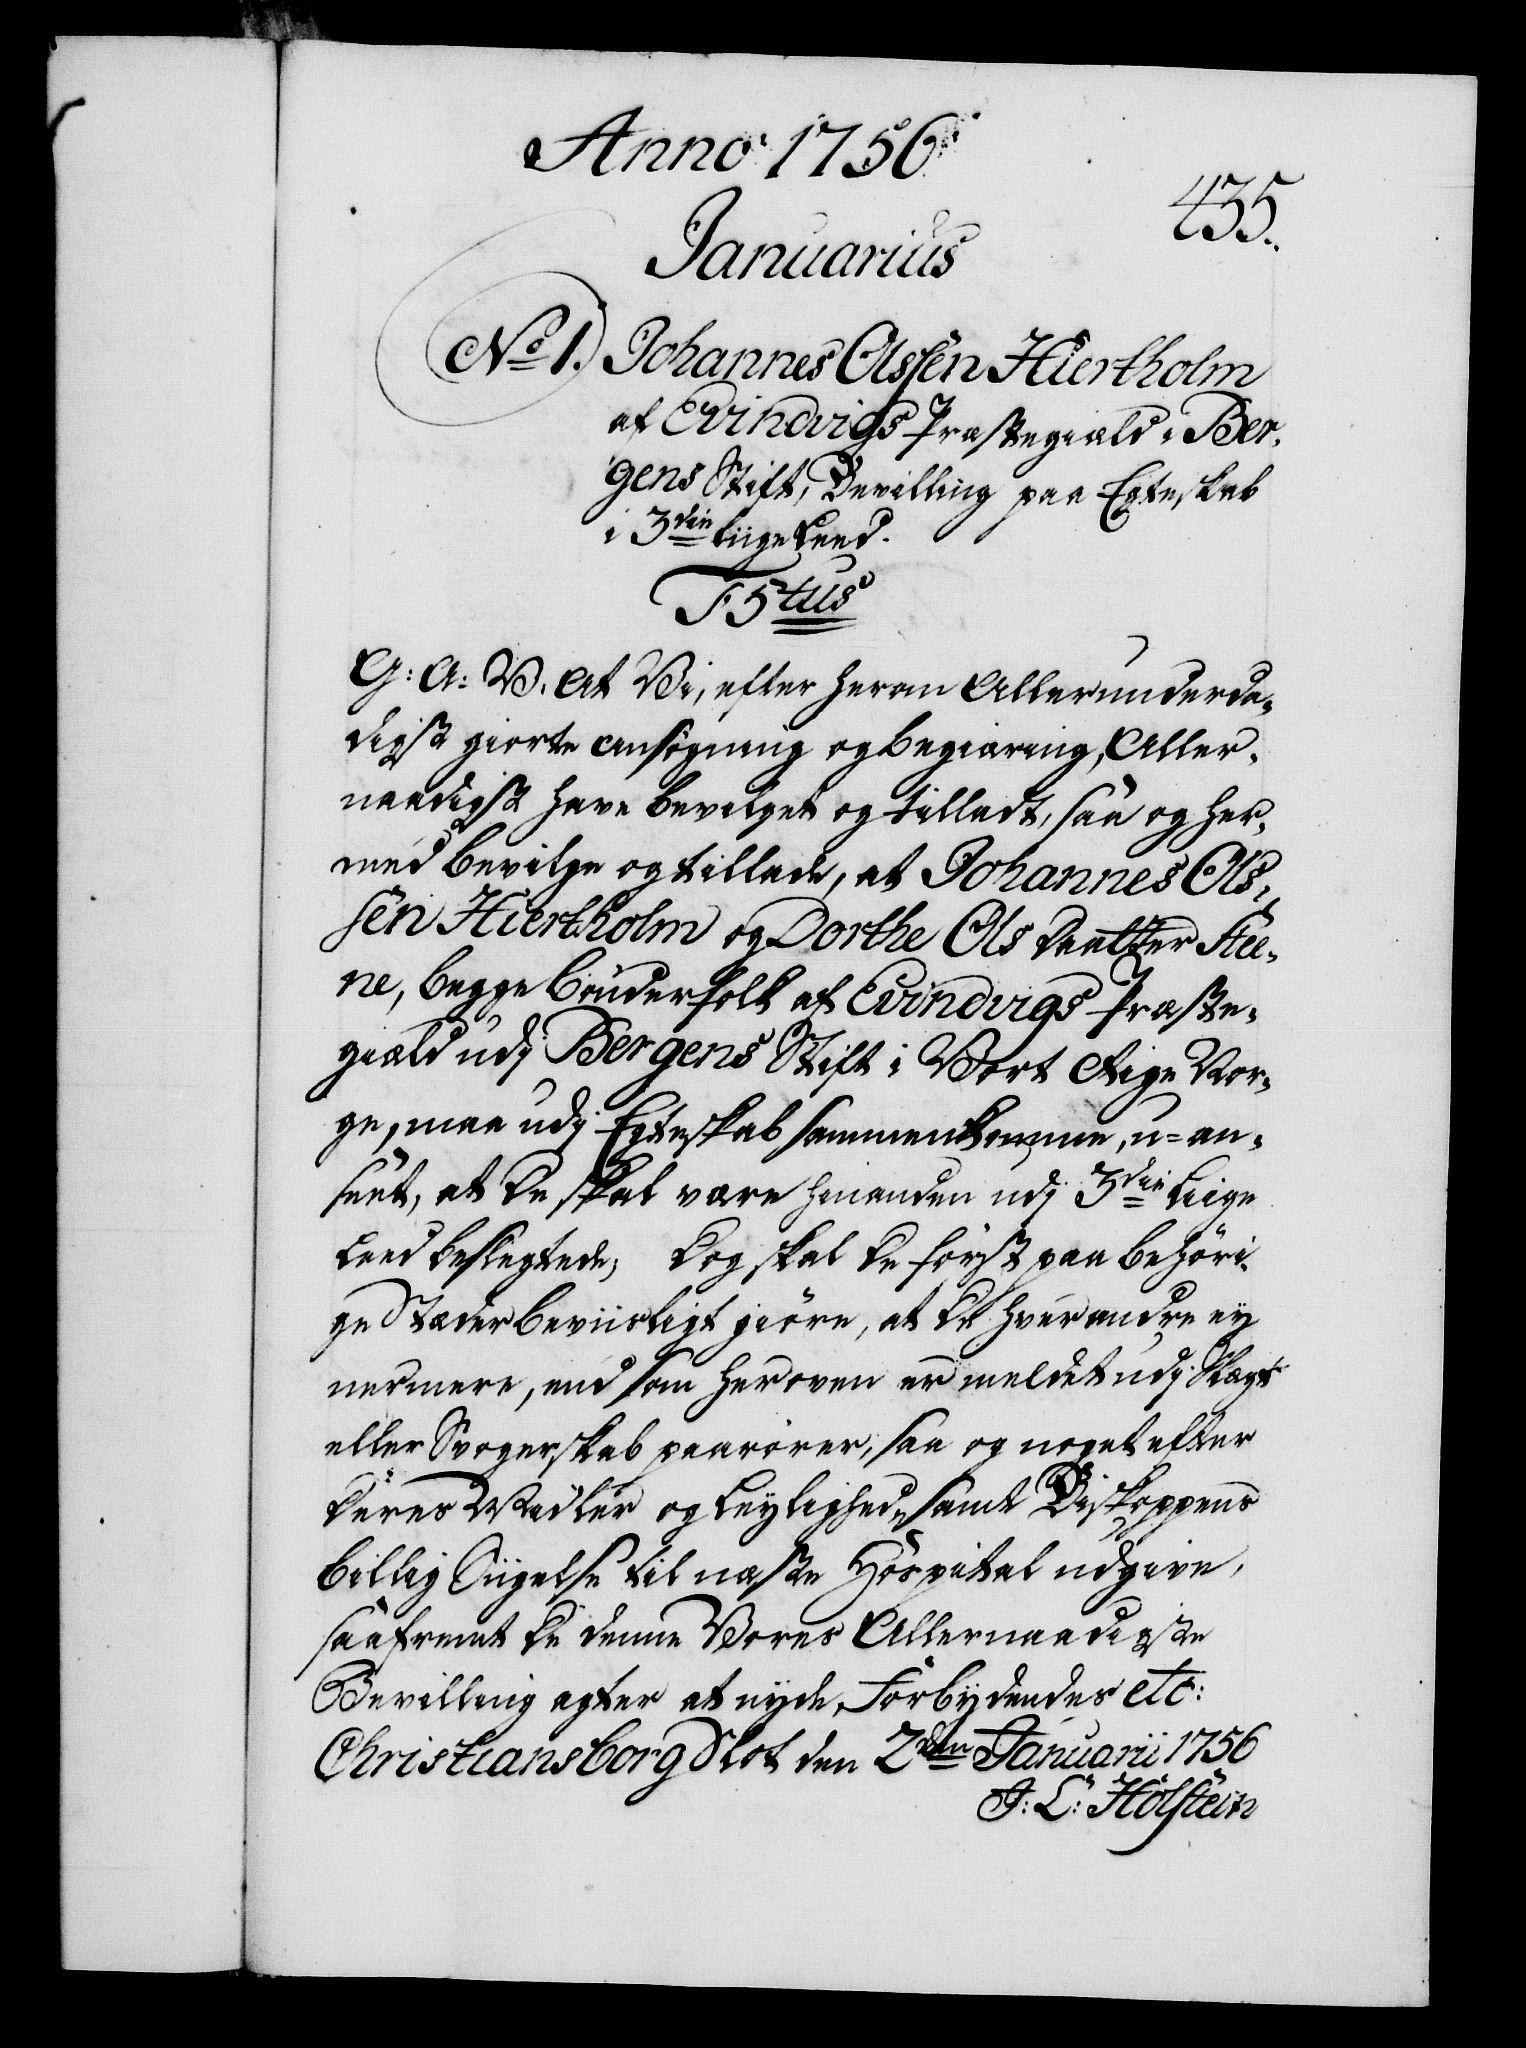 Anno 1756
435.
Januarius
No 1. Johannes Olssen Hiertholm
af Evindvigs Præstegiæld i Ber-
gens Stift, Bevilling paa Egteskab
i 3die liige Leed.
F 5tus
G: A: V. At Vi, efter herom Allerunderda-
digst giorte Ansøgning og begiæring, Aller-
naadigst have bevilget og tilladt, saa og her-
med bevilge og tillade, at Johannes Ols-
sen Hiertholm og Dorthe Ols Daatter
ne, begge bønderfolk af Evindvigs Præste-
giæld udj Bergens Stift i Vort Rige Nor-
ge, maa udj Egteskab sammenkomme, u-an-
seet, at de skal være hinanden udj 3die Liige
Leed beslegtede; dog skal de først paa behøri-
ge Stæder beviisligt giøre, at de hverandre ey
nermere, end som heroven er meldet udj Slægt
eller Svogerskab paarører, saa og noget efter
deres Midler og Leylighed, samt Biskoppens
billig Siigelse til næste Hospital udgive,
saafremt de denne Vores Allernaadigste
Bevilling agter at nyde, Forbydendes etc:
Christiansborg Slot den 2den Januarii 1756
J: L: Holstein